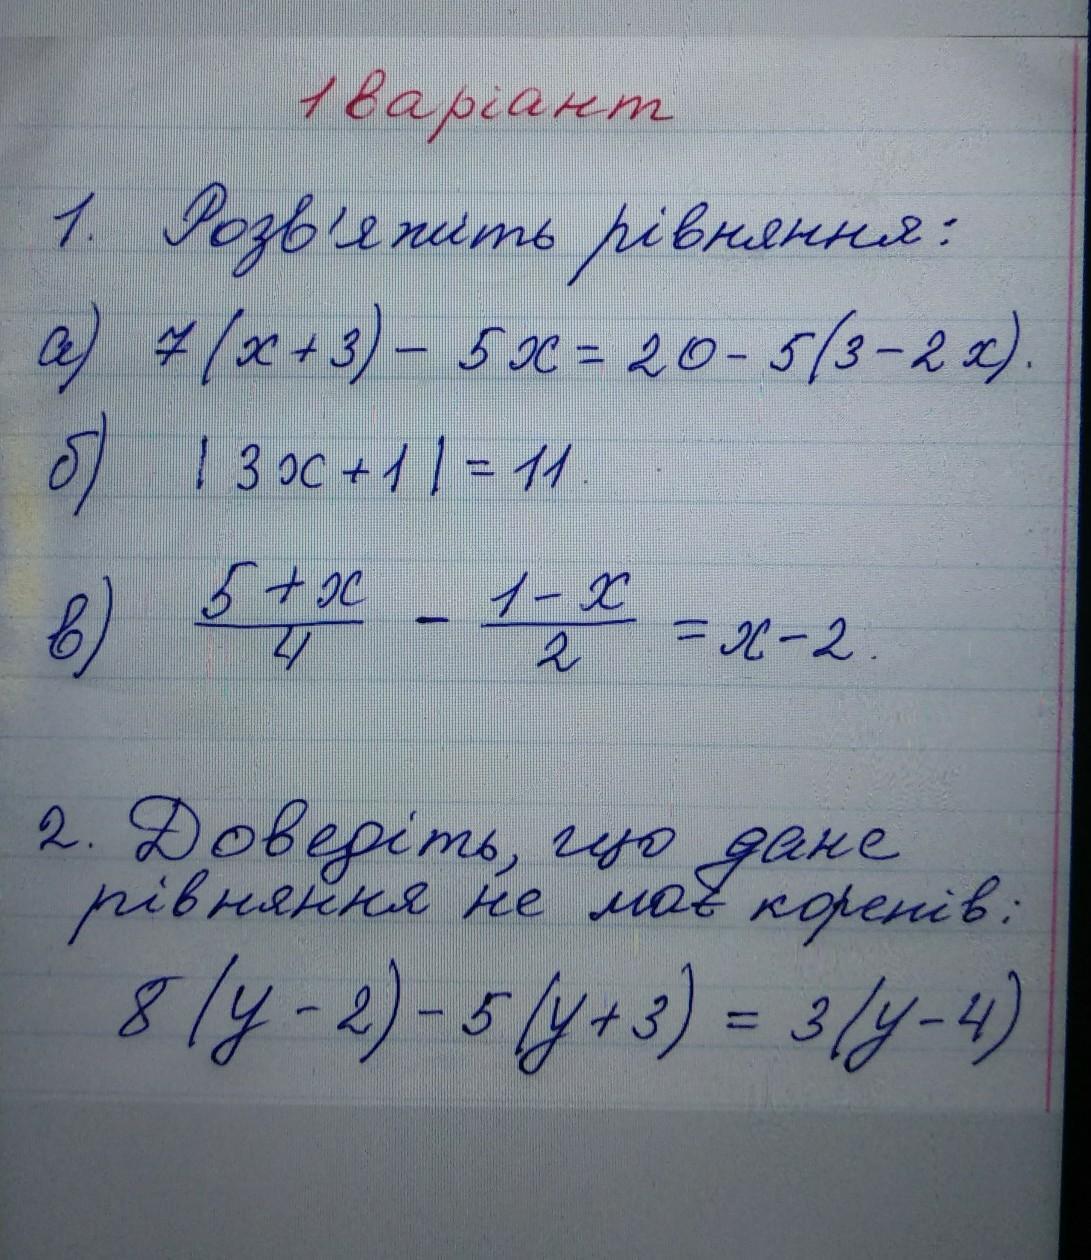 1 варіант
1. Розв'яжіть рівняння:
а) 7(x+3) - 5x = 20 - 5(3-2x).
б) |3x+1| = 11.
в) \frac{5+x}{4} - \frac{1-x}{2} = x-2.
2. Доведіть, що дане
рівняння не має коренів:
8(y-2) - 5(y+3) = 3(y-4)